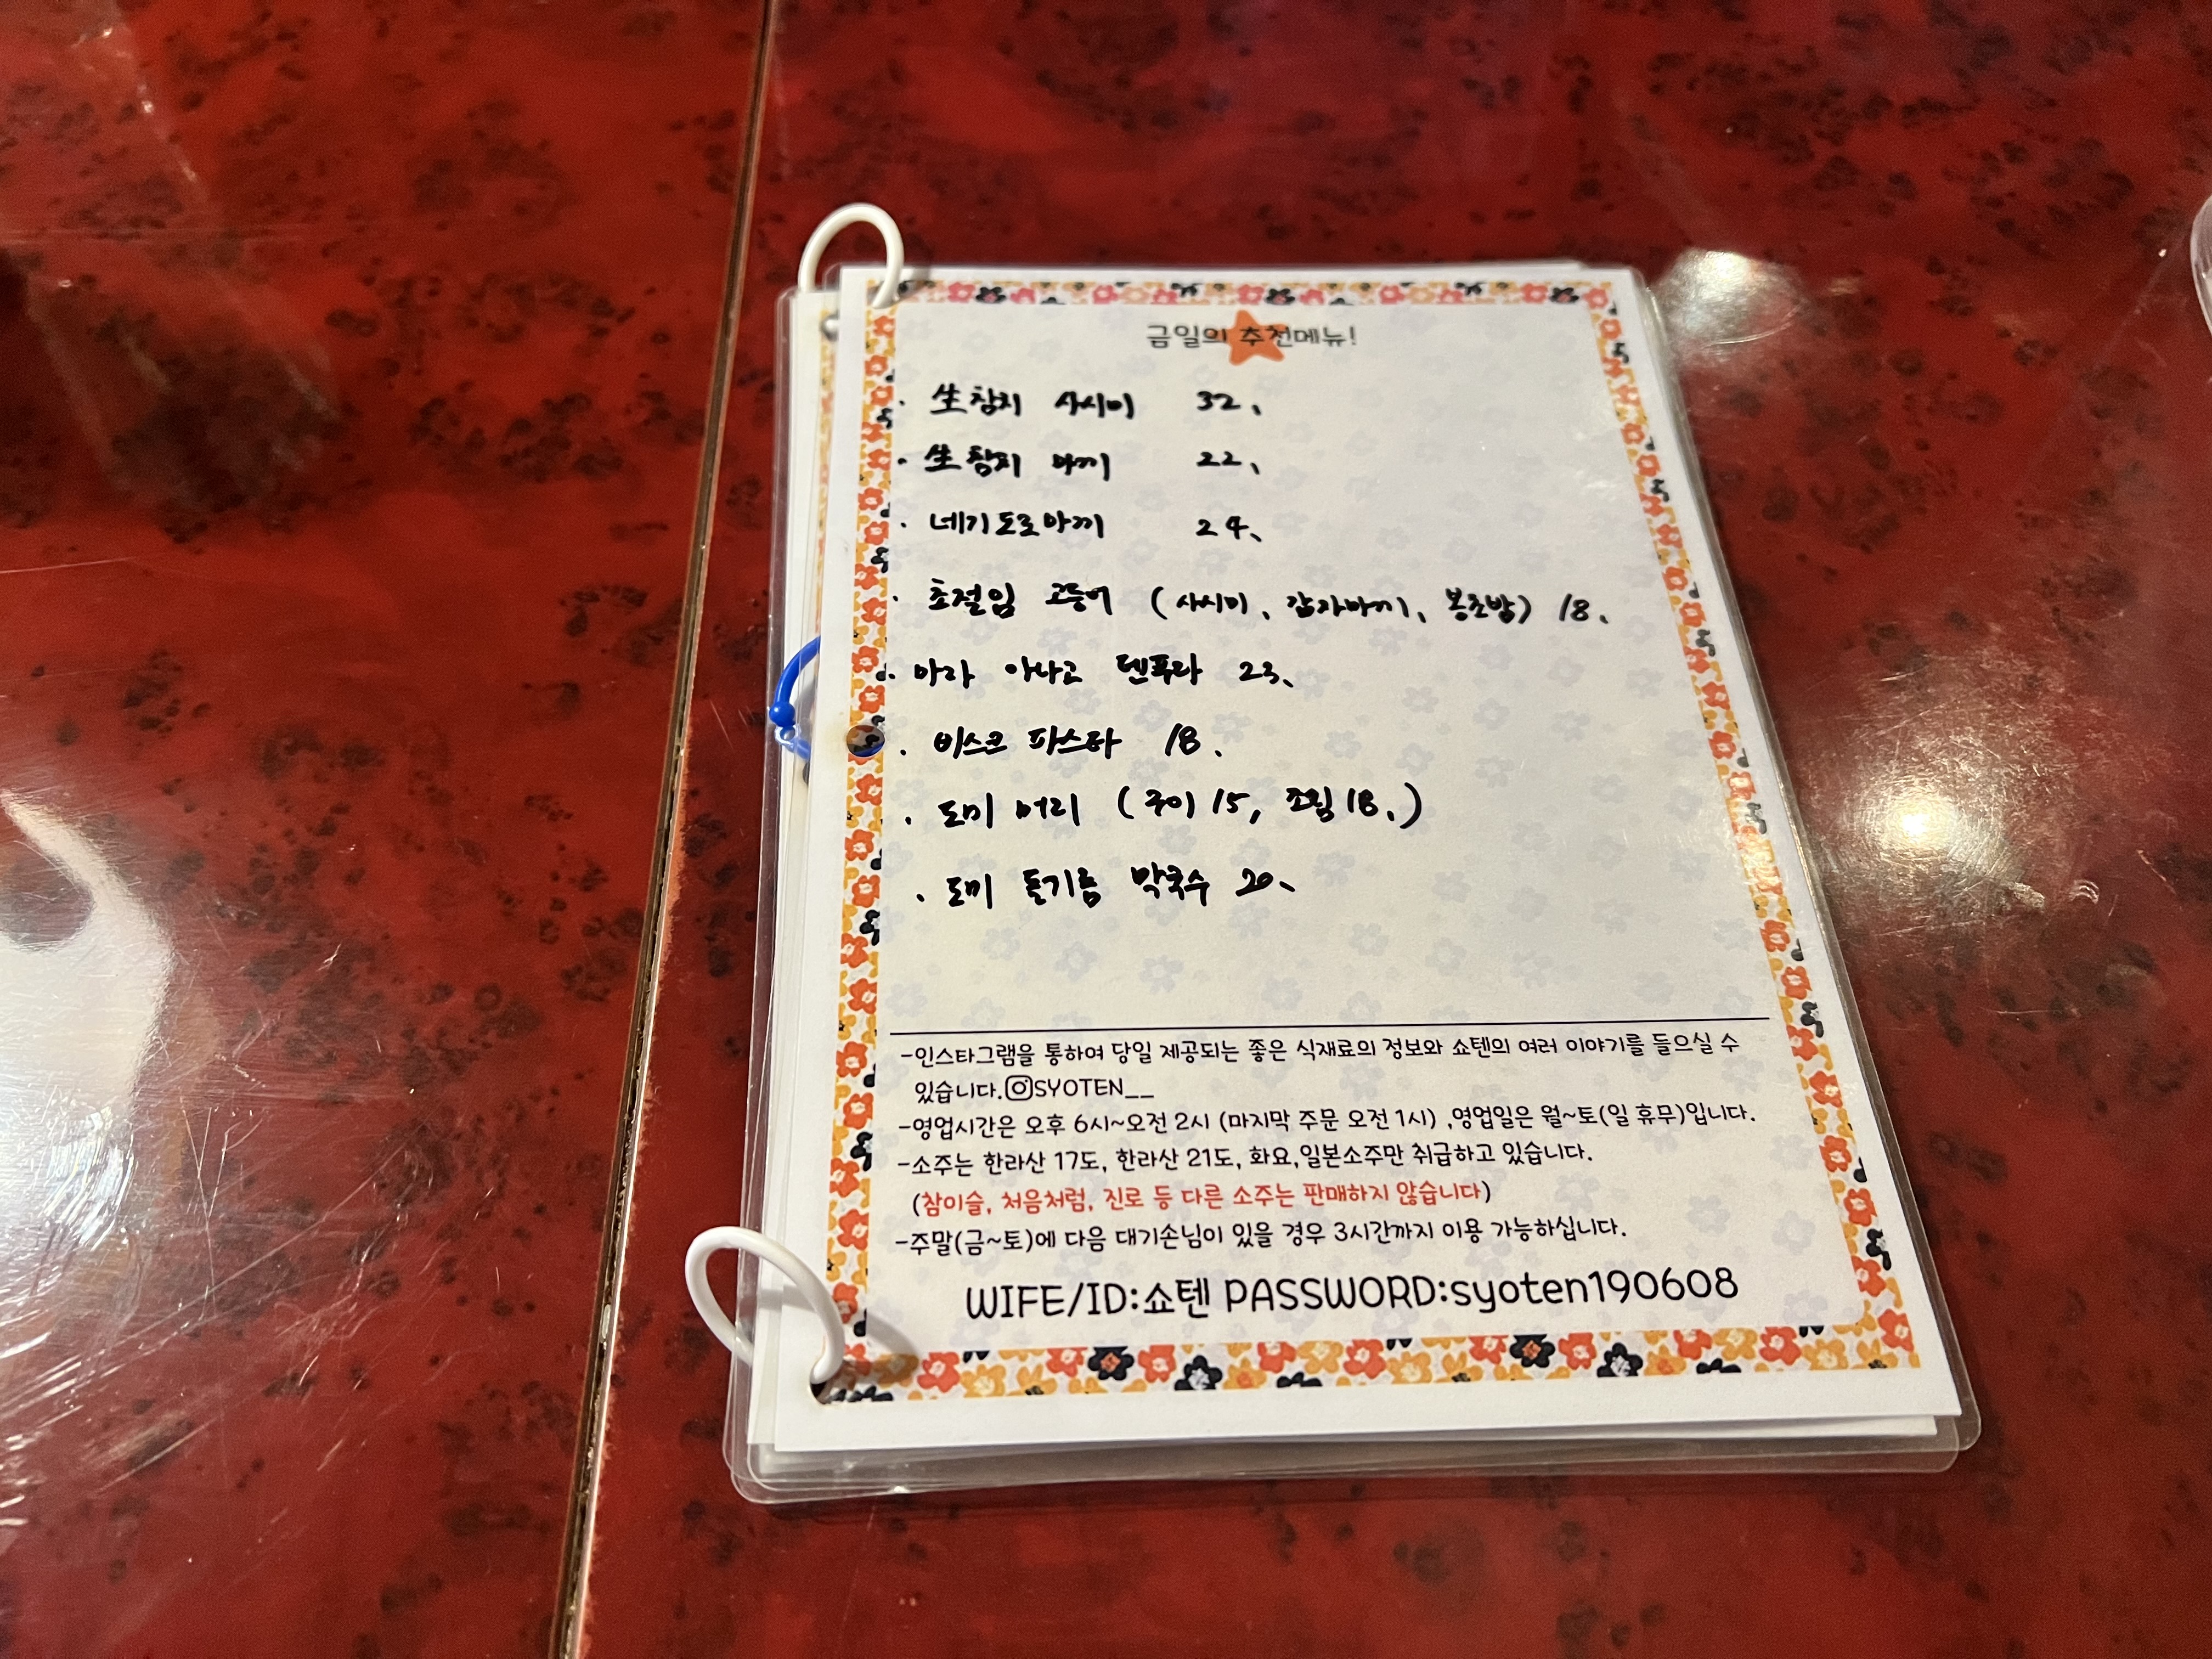 금일의 추천메뉴!
· 生참치 사시미 32、
· 生참치 마끼 22、
· 네기도로마끼 24、
· 초절임 고등어 (사시미, 감자마끼, 봉초밥) 18、
· 마라 아나고 텐푸라 23、
· 비스크 파스타 18、
· 도미 머리 (구이 15, 조림 18、)
· 도미 들기름 막국수 20、
-인스타그램을 통하여 당일 제공되는 좋은 식재료의 정보와 쇼텐의 여러 이야기를 들으실 수
있습니다.SYOTEN__
-영업시간은 오후 6시~오전 2시 (마지막 주문 오전 1시) ,영업일은 월~토(일 휴무)입니다.
-소주는 한라산 17도, 한라산 21도, 화요,일본소주만 취급하고 있습니다.
(참이슬, 처음처럼, 진로 등 다른 소주는 판매하지 않습니다)
-주말(금~토)에 다음 대기손님이 있을 경우 3시간까지 이용 가능하십니다.
WIFE/ID:쇼텐 PASSWORD:syoten190608